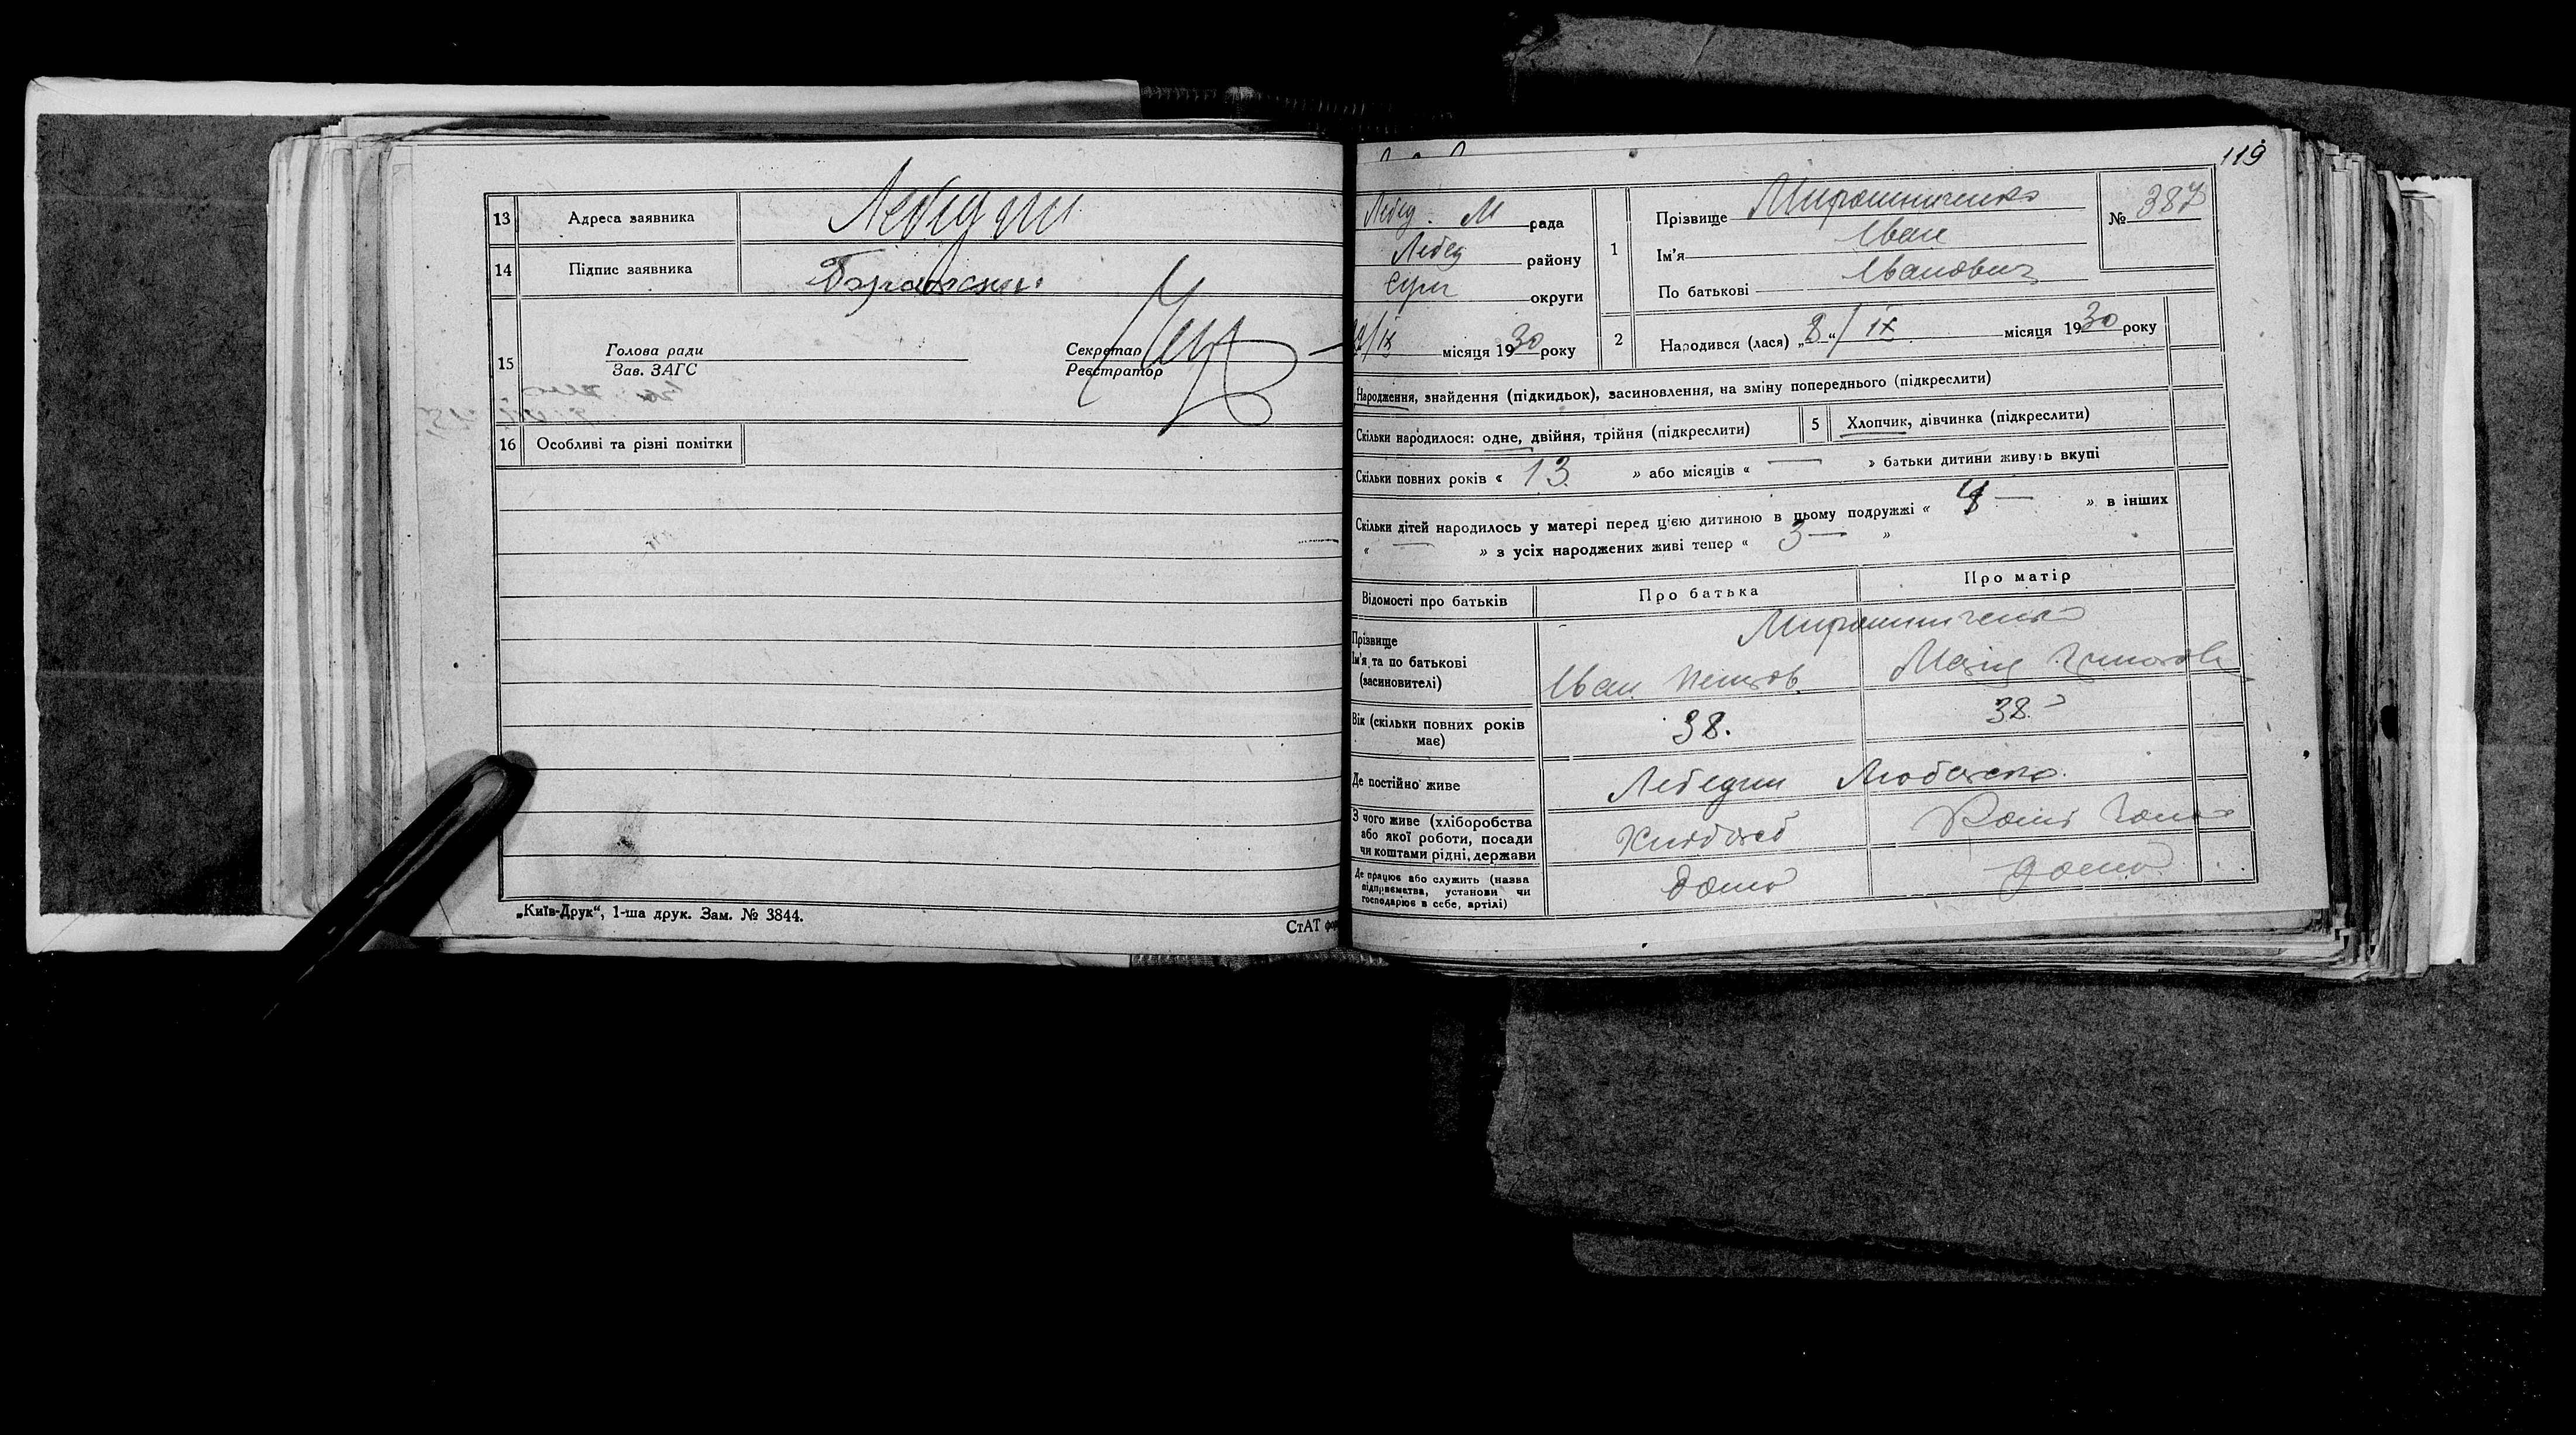 13 Адреса заявника Лебедин
14 Підпис заявника
15 Голова ради Секретар
Зав. ЗАГС Реєстратор
16 Особливі та різні помітки
„Київ-Друк“, 1-ша друк. Зам. № 3844.
СтАТ фор
119
Лебед. М рада
Лебед району
Сум округи
/ІХ місяця 1930 року
1 Прізвище Мирошниченко
Ім'я Іван
По батькові Іванович
№ 387
2 Народився (лася) „8“/ІХ місяця 1930 року
Народження, знайдення (підкидьок), засиновлення, на зміну попереднього (підкреслити)
Скільки народилося: одне, двійня, трійня (підкреслити) 5 Хлопчик, дівчинка (підкреслити)
Скільки повних років « 13 » або місяців « — » батьки дитини живуть вкупі
Скільки дітей народилось у матері перед цією дитиною в цьому подружжі « — » в інших
« — » з усіх народжених живі тепер « 3 — »
Відомості про батьків Про батька Про матір
Прізвище Мирошниченко
Ім'я та по батькові Іван Петров. Марія
(засиновителі)
Вік (скільки повних років має) 38. 38.
Де постійно живе Лебедин
З чого живе (хліборобства
або якої роботи, посади
чи коштами рідні, держави Хлібороб
Де працює або служить (назва
підприємства, установи чи
господарює в себе, артілі) дома дома